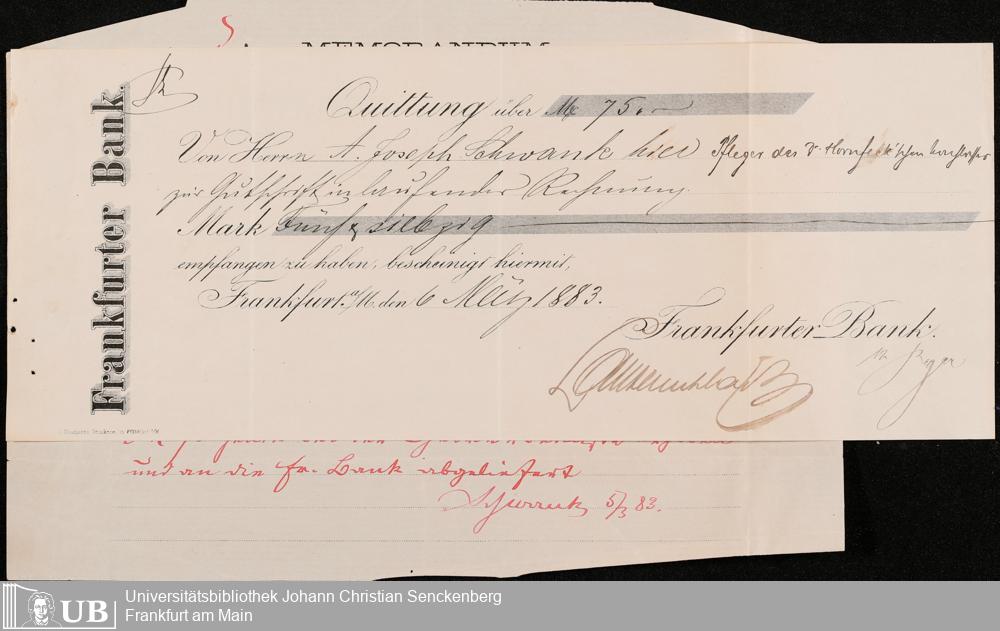 MEMORANDUM
Frankfurter Bank.
Quittung über M 75.—
Von Herrn A. Joseph Schwank hier Pfleger des Dr.
zur Gutschrift in laufender Rechnung.
Mark Fünf & siebzig
empfangen zu haben, bescheinigt hiermit,
Frankfurt a/M. den 6 März 1883.
Frankfurter Bank.
und an die fr. Bank abgeliefert
Schwank 5/3 83.
UB
Universitätsbibliothek Johann Christian Senckenberg
Frankfurt am Main